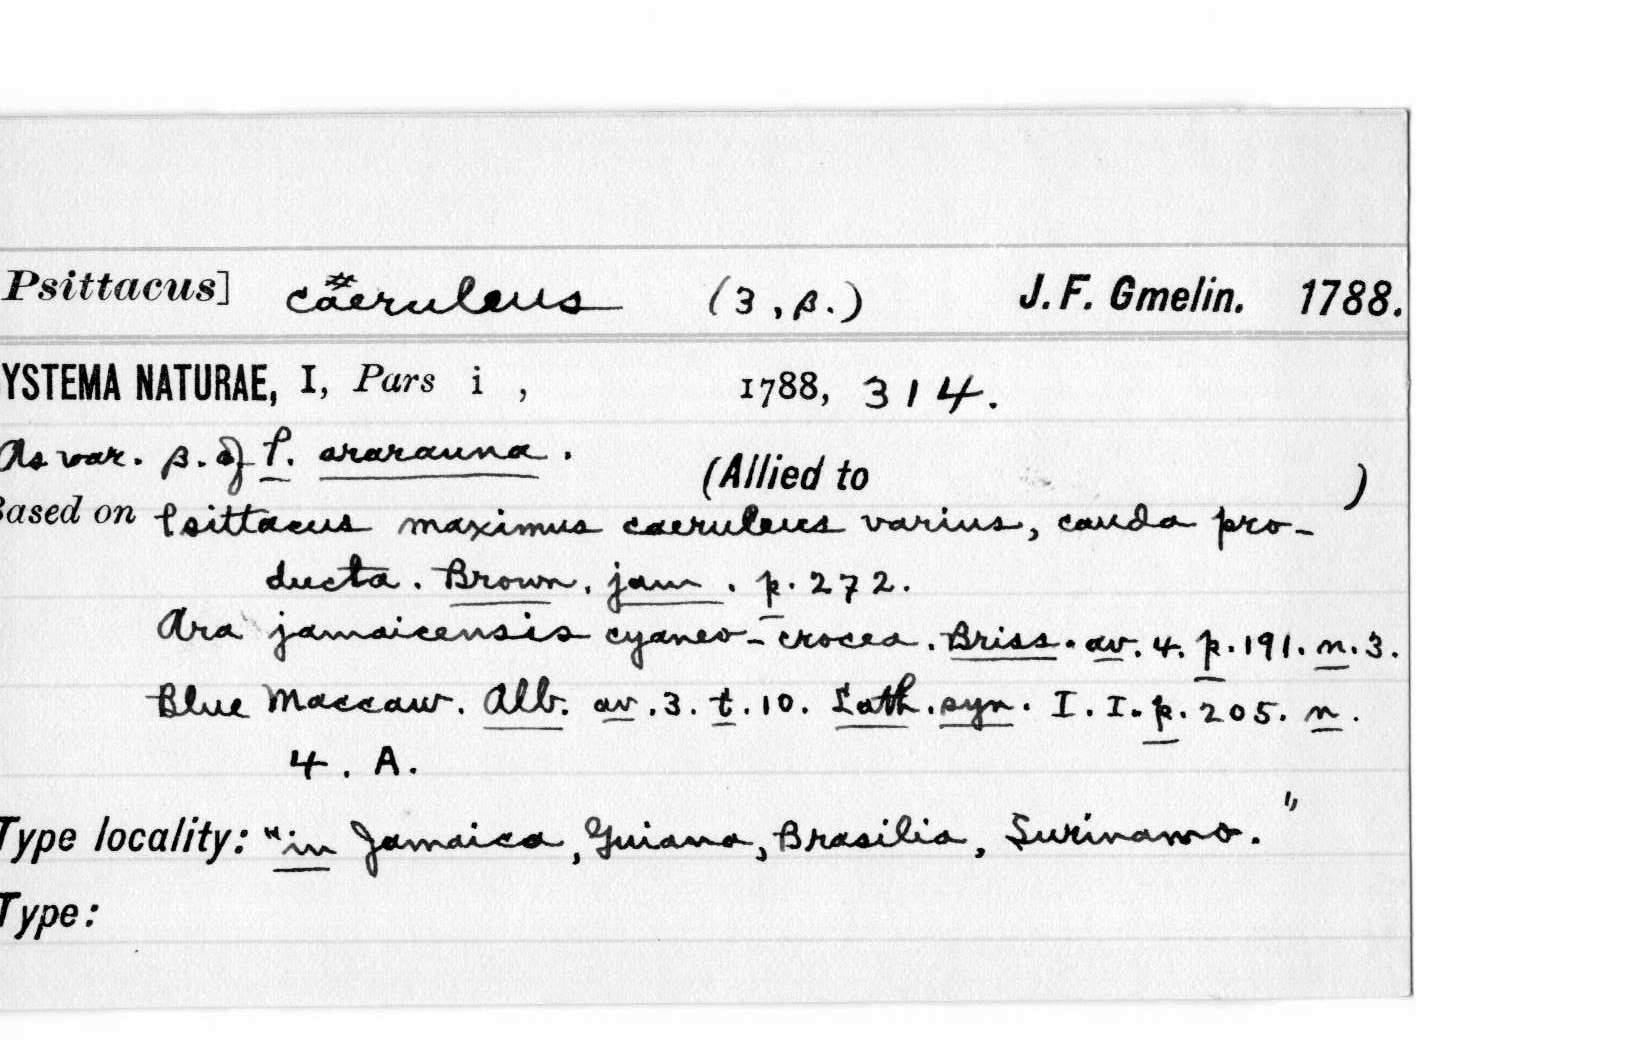 Psittacus] cæruleus (3,β.) J. F. Gmelin. 1788.
YSTEMA NATURAE, I, Pars i , 1788, 314.
As var. β. of P. ararauna . (Allied to )
Based on Psittacus maximus caeruleus varius, cauda pro-
ducta. Brown. jam . p. 272.
Ara jamaicensis cyaneo-crocea. Briss. av. 4. p. 191. n. 3.
Blue Maccaw. Alb. av. 3. t. 10. Lath. syn. I. I. p. 205. n.
4. A.
Type locality: "in Jamaica, Guiana, Brasilia, Surinamo."
Type: